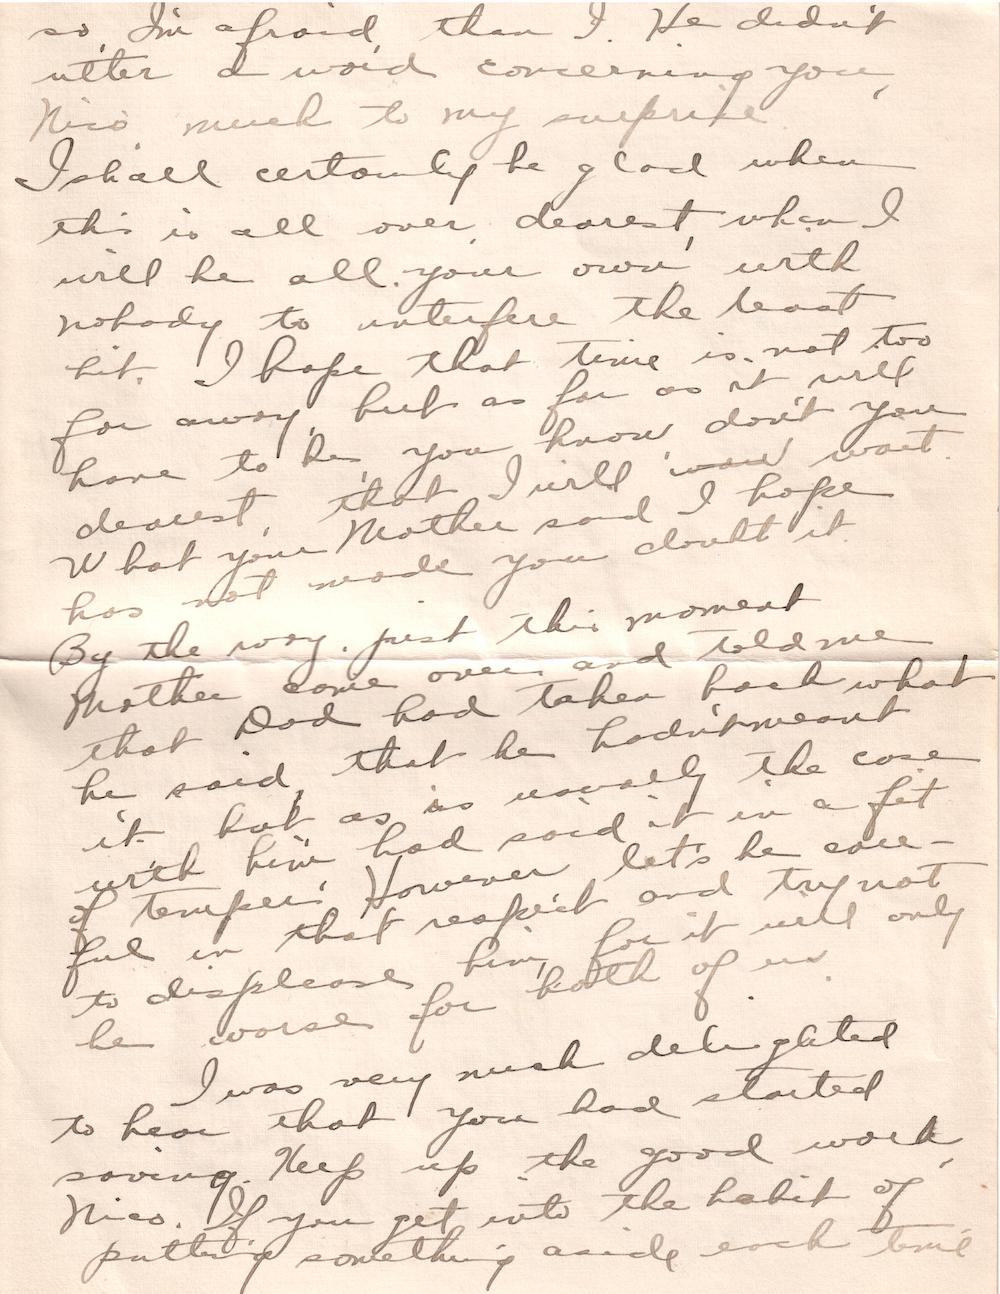 so, I'm afraid, than I. He didn't
utter a word concerning you,
Nico, much to my surprise.
I shall certainly be glad when
this is all over, dearest, when I
will be all your own, with
nobody to interfere the least
bit. I hope that time is not too
far away, but as far as it will
have to be, you know don't you
dearest, that I will wait.
What your Mother said I hope
has not made you doubt it.
By the way, just this moment
Mother came over and told me
that Dad had taken back what
he said, that he hadn't meant
it but as is usually the case
with him had said it in a fit
of temper. However let's be care-
ful in that respect and try not
to displease him, for it will only
be worse for both of us.
I was very much delighted
to hear that you had started
saving. Keep up the good work,
Nico. If you get into the habit of
putting something aside each time